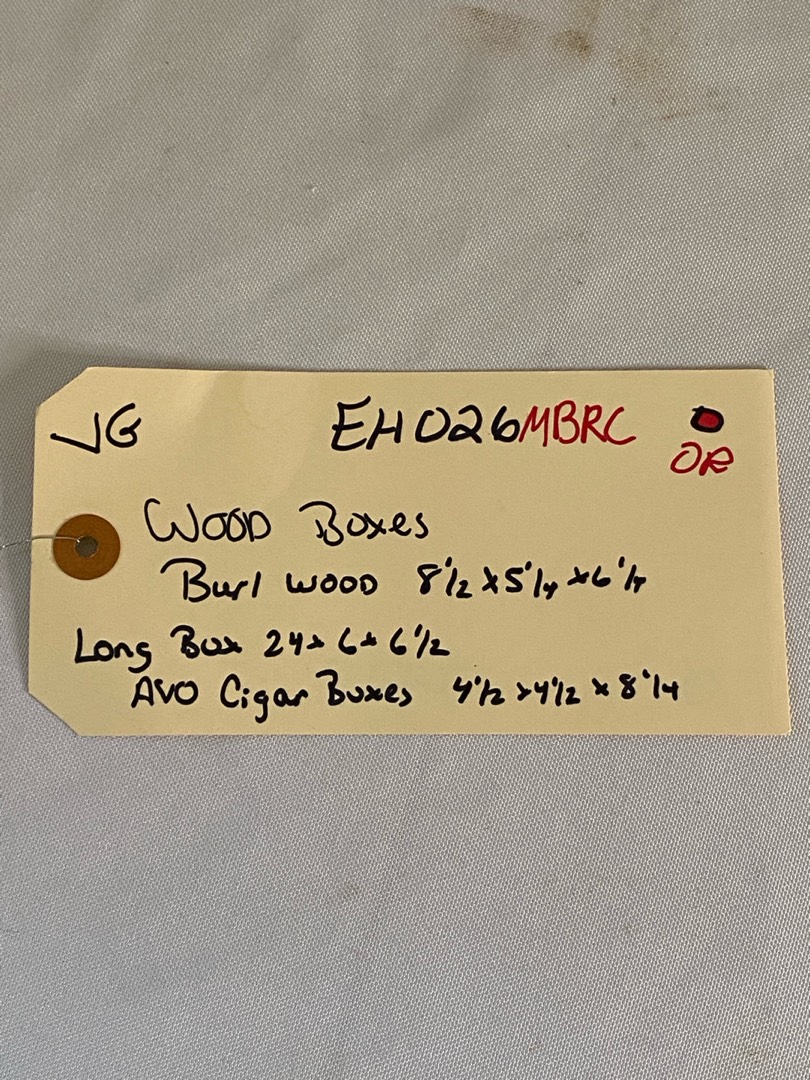 VG EH026MBRC
OR
Wood Boxes
Burl wood 8 1/2 x 5 1/4 x 6 1/4
Long Box 24 x 6 x 6 1/2
AVO Cigar Boxes 4 1/2 x 4 1/2 x 8 1/4